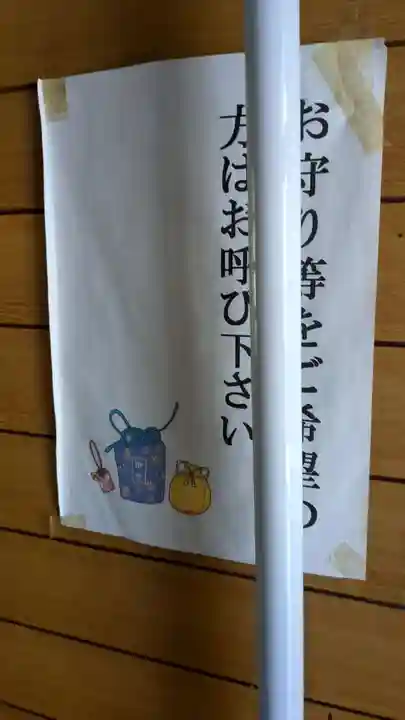 お守り等をご希望の
方はお呼び下さい